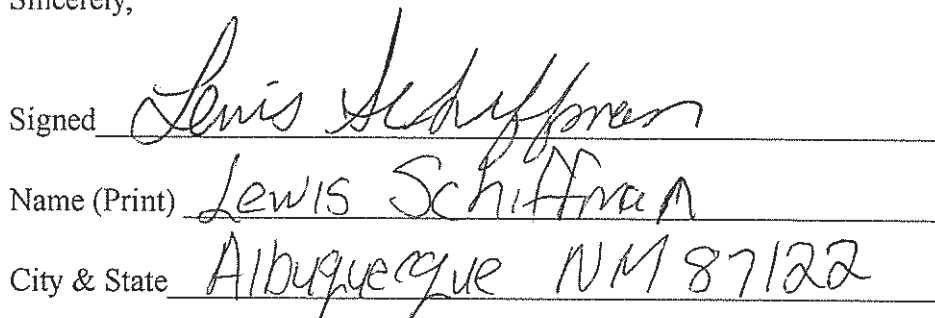 Sincerely,
Signed Lewis Schiffman
Name (Print) Lewis Schiffman
City & State Albuquerque NM 87122